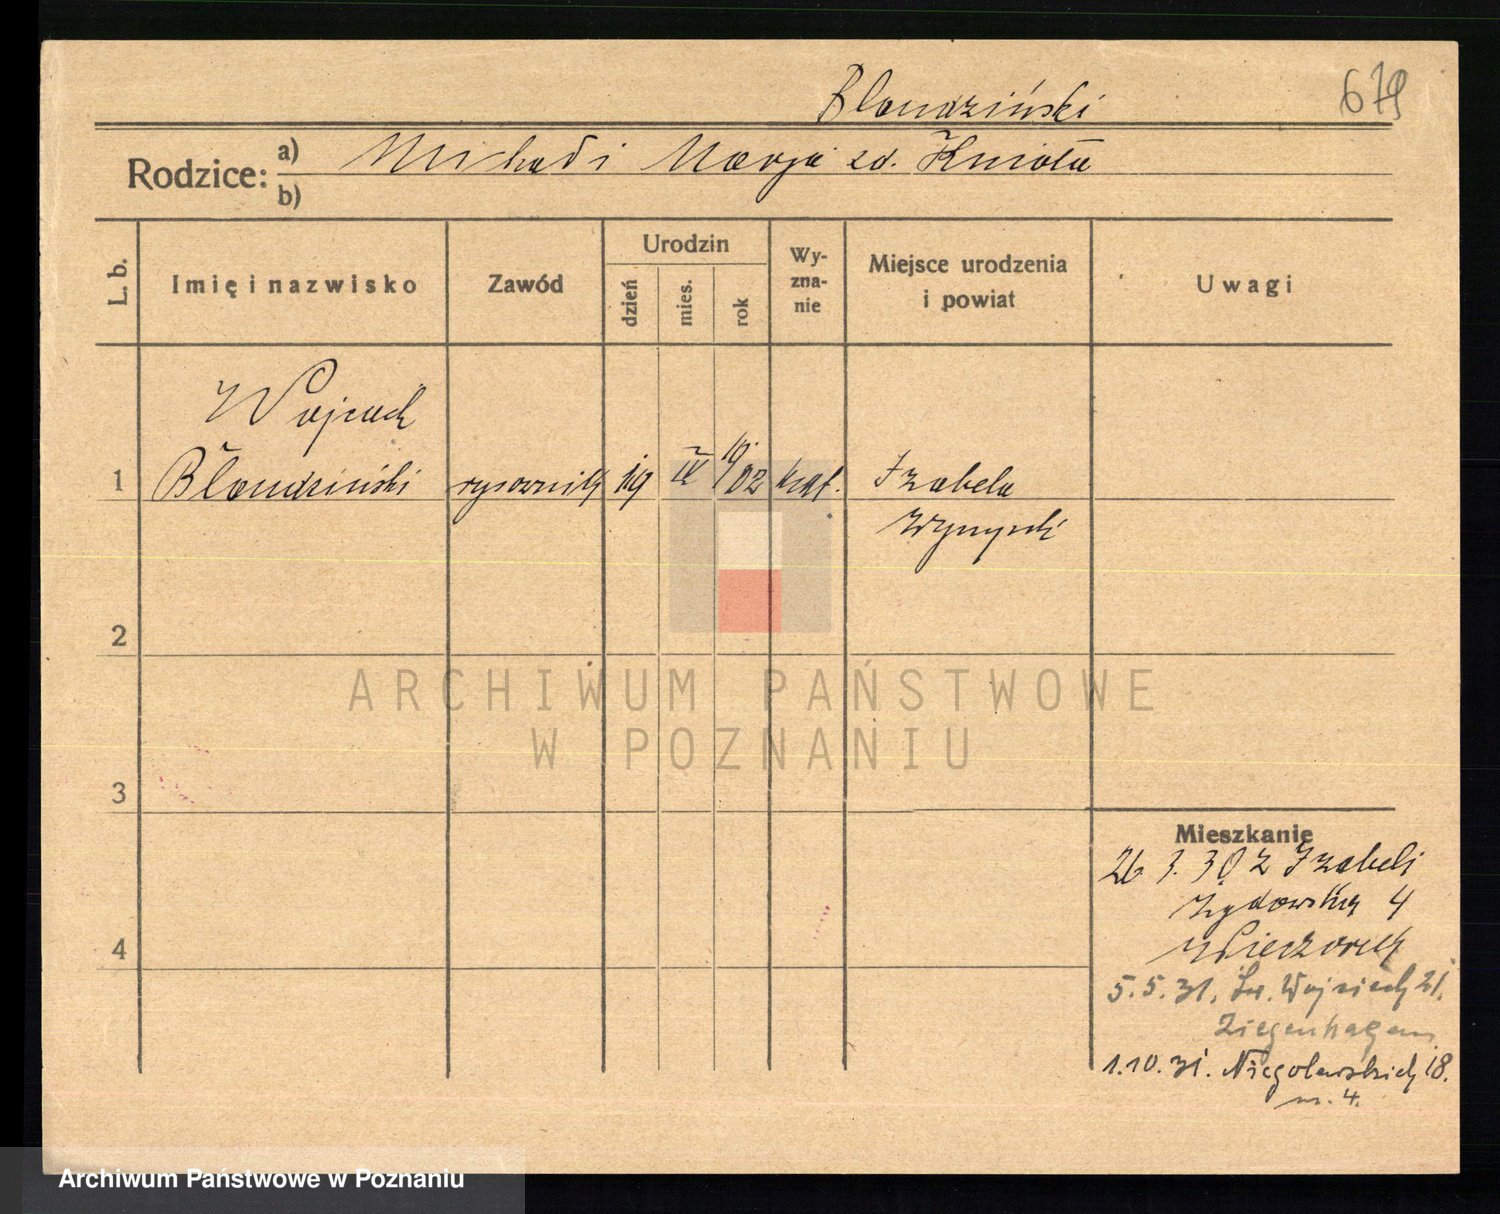 Błondziński
679
Rodzice: a) Michał i Marja zd. Kmiota
b)
L. b.
Imię i nazwisko
Zawód
Urodzin
dzień
mies.
rok
Wy-
zna-
nie
Miejsce urodzenia
i powiat
Uwagi
Wojciech
1 Błondziński rysownik 19 IV 1902 kat. Izabela
2
ARCHIWUM PAŃSTWOWE
W POZNANIU
3
Mieszkanie
26 3. 30 z Izabeli
Żydowska 4
Wieczorek
4
5.5.31. Św. Wojciech 21.
Ziegenhagen
1.10.31. Niegolewskich 18.
m. 4.
Archiwum Państwowe w Poznaniu